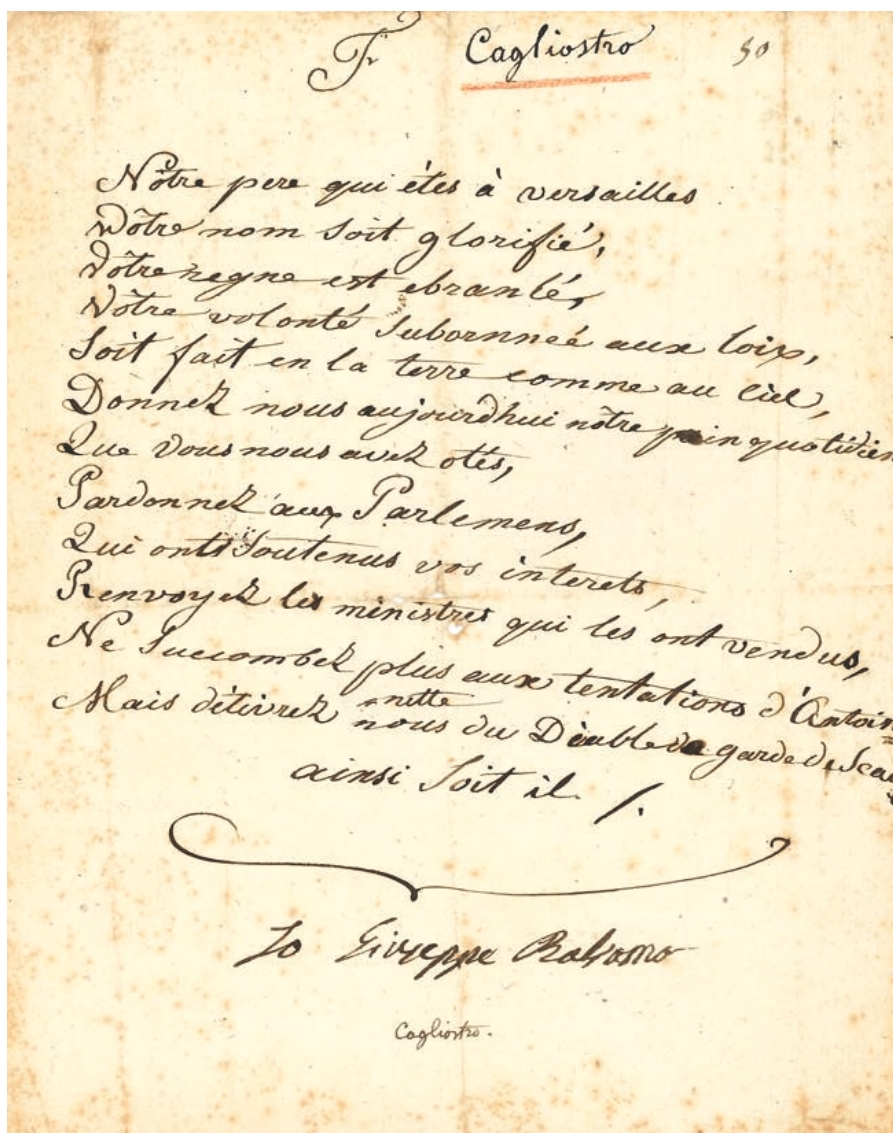 Fr Cagliostro 50
Nôtre pere qui étes à versailles
Vôtre nom soit glorifié,
Vôtre regne est ebranlé,
Vôtre volonté subornneé aux loix,
Soit fait en la terre comme au ciel,
Donnez nous aujourdhui nôtre pain quotidien
Que vous nous avez otés,
Pardonnez aux Parlemens,
Qui ont soutenus vos interets,
Renvoyez les ministres qui les ont vendus,
Ne succombez plus aux tentations d'Antoi=
nette
Mais délivrez nous du Diable de garde de Scea
ainsi soit il /.
Io Giuseppe Balsamo
Cagliostro.